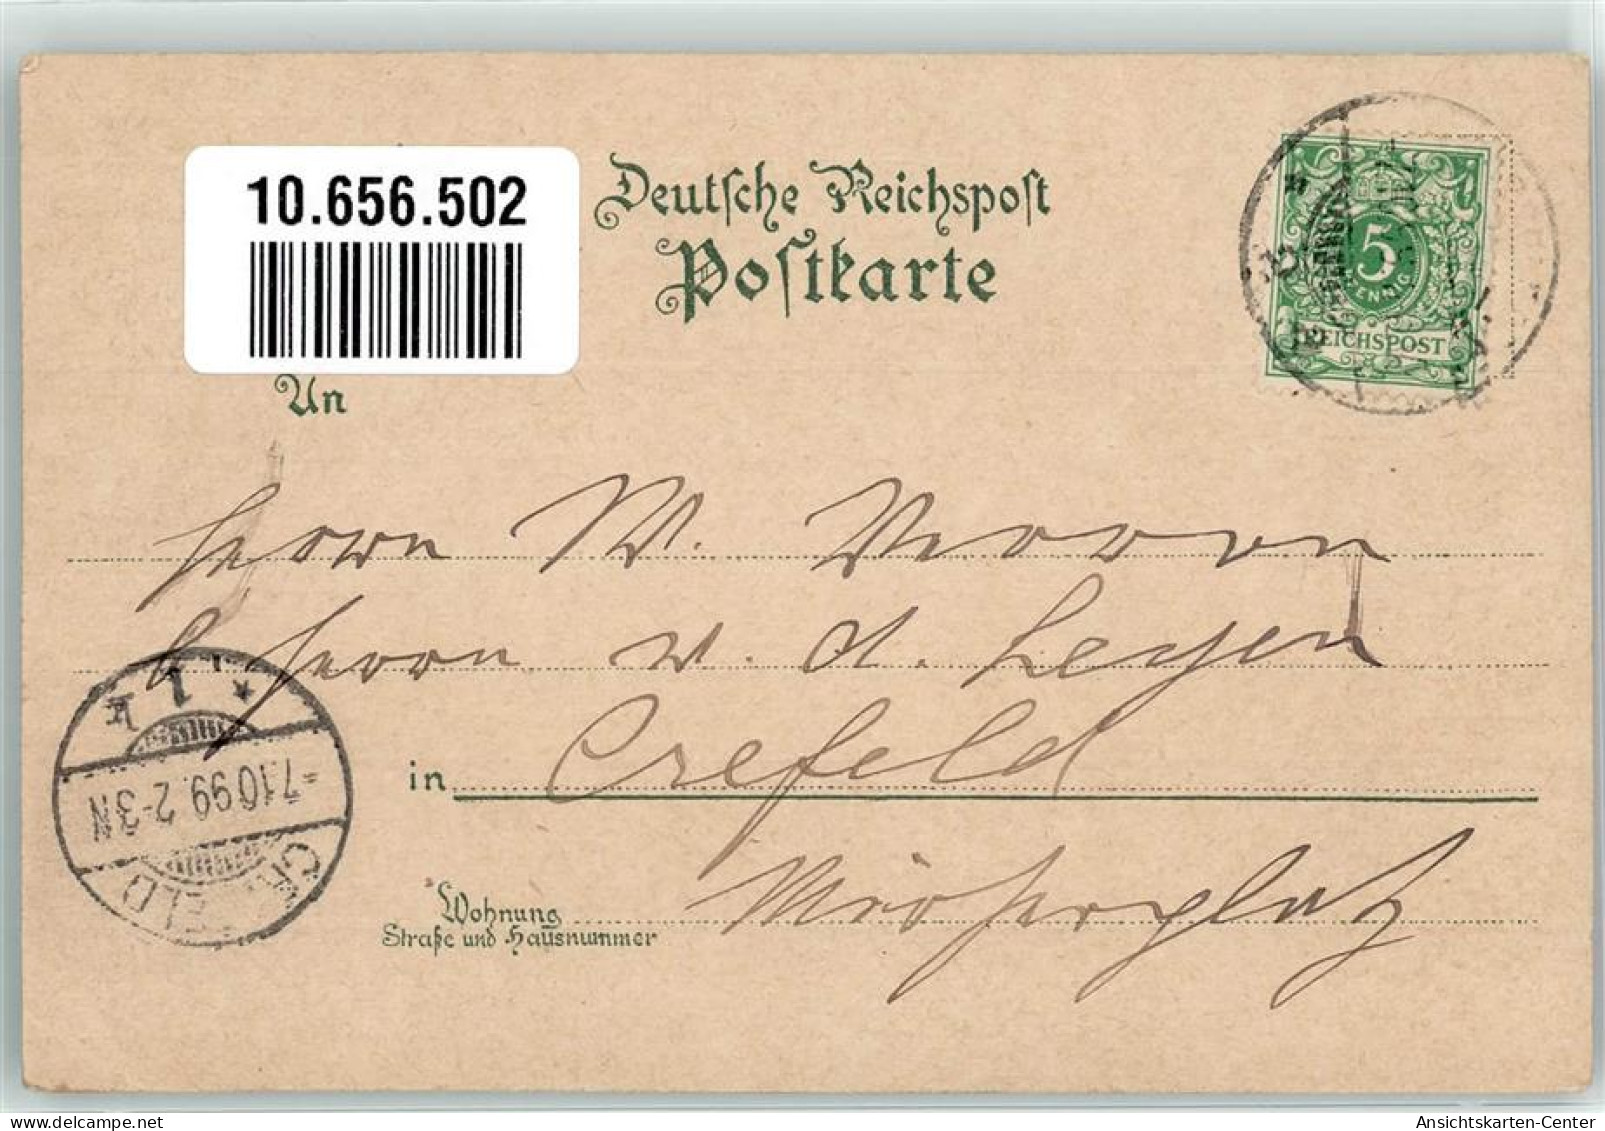 10.656.502
Deutsche Reichspost
Postkarte
5
PFENNIG
REICHSPOST
An
Herrn W.
b/Herrn v. d. Leyen
in Crefeld
Wohnung
Straße und Hausnummer
* 1 k
7.10.99. 2-3N
CREFELD
Ansichtskarten-Center